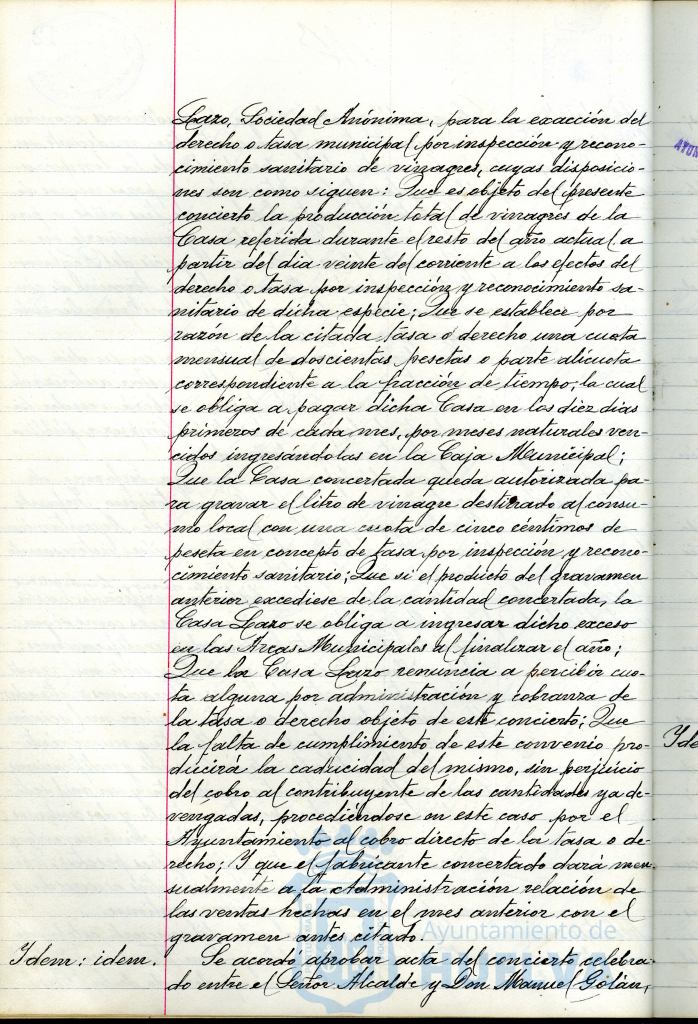 Lazo, Sociedad Anónima, para la exacción del
derecho o tasa municipal por inspección y recono-
cimiento sanitario de vinagres, cuyas disposicio-
nes son como siguen: Que es objeto del presente
concierto la producción total de vinagres de la
Casa referida durante el resto del año actual, a
partir del dia veinte del corriente a los efectos del
derecho o tasa por inspección y reconocimiento sa-
nitario de dicha especie; Que se establece por
razón de la citada tasa o derecho una cuota
mensual de doscientas pesetas o parte alicuota
correspondiente a la fracción de tiempo; la cual
se obliga a pagar dicha Casa en los diez dias
primeros de cada mes, por meses naturales ven-
cidos ingresándolas en la Caja Municipal;
Que la Casa concertada queda autorizada pa-
ra gravar el litro de vinagre destinado al consu-
mo local con una cuota de cinco céntimos de
peseta en concepto de tasa por inspección y recono-
cimiento sanitario; Que si el producto del gravamen
anterior excediese de la cantidad concertada, la
Casa Lazo se obliga a ingresar dicho exceso
en las Arcas Municipales al finalizar el año;
Que la Casa Lazo renuncia a percibir cuo-
ta alguna por administración y cobranza de
la tasa o derecho objeto de este concierto; Que
la falta de cumplimiento de este convenio pro-
ducirá la caducidad del mismo, sin perjuicio
del cobro al contribuyente de las cantidades ya de-
vengadas, procediéndose en este caso por el
Ayuntamiento al cobro directo de la tasa o de-
recho; Y que el fabricante concertado dará men-
sualmente a la Administración relación de
las ventas hechas en el mes anterior con el
gravamen antes citado.
Ydem: idem. Se acordo aprobar acta del concierto celebra-
do entre el Señor Alcalde y Don Manuel Golán,
Ayuntamiento de
HUELVA